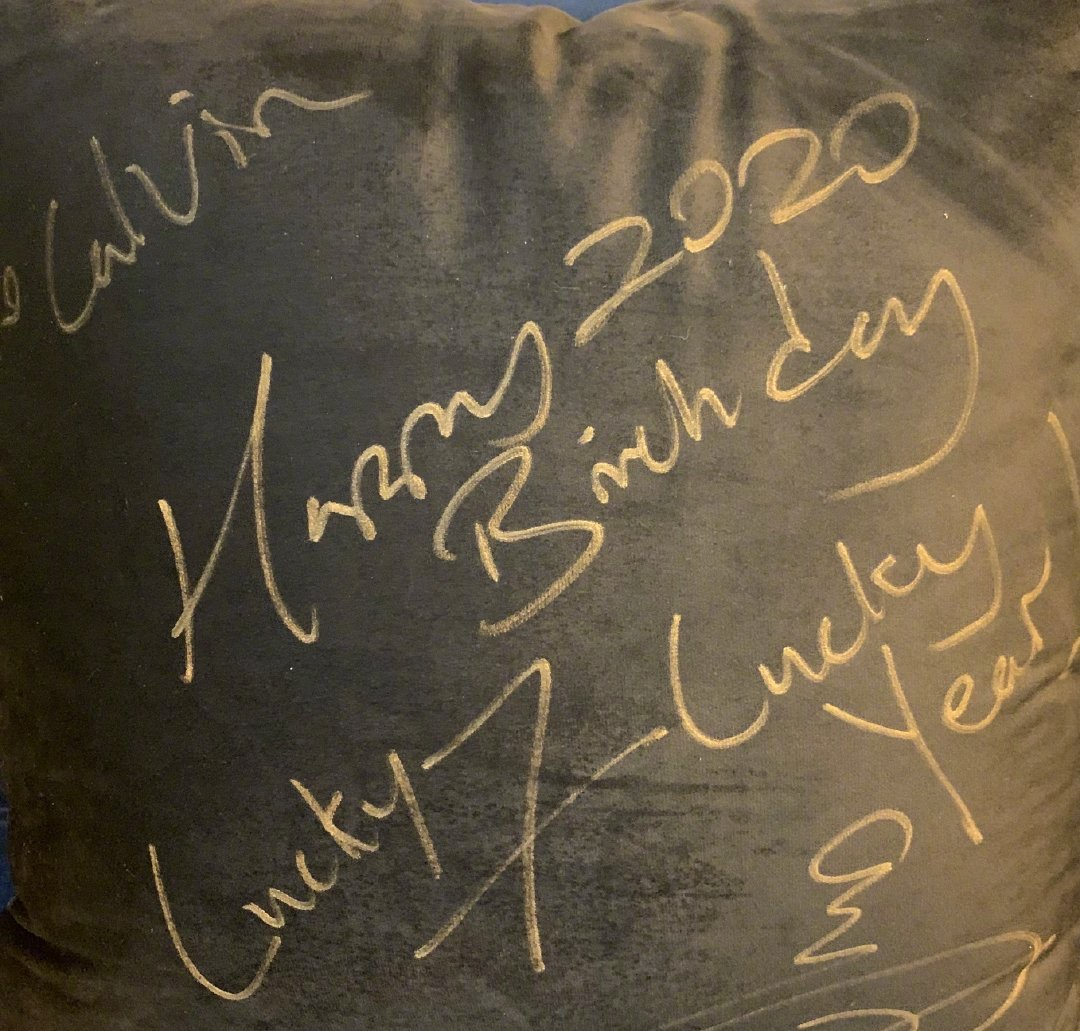 Calvin
2020
Happy
Birthday
Lucky 7
Lucky
Year